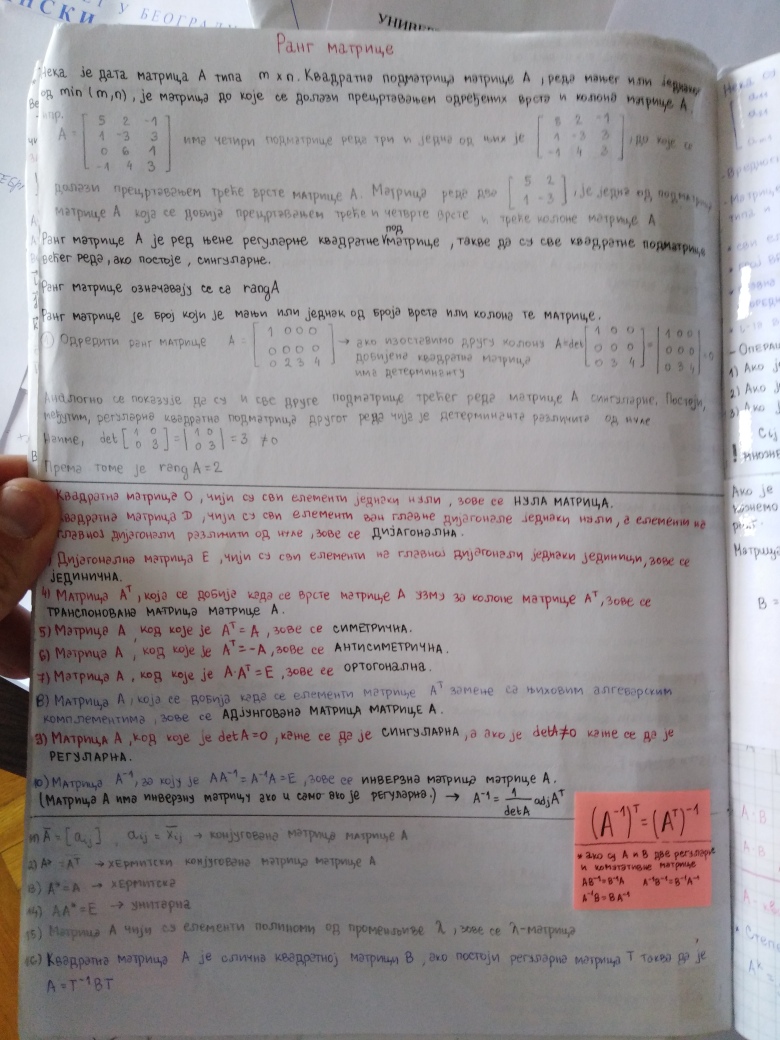 ЕТ У БЕОГРАДУ
НСКИ
УНИВЕР
Ранг матрице
Нека је дата матрица А типа m x n. Квадратна подматрица матрице А, реда мањег или једнаког
од min (m,n), је матрица до које се долази прецртавањем одређених врста и колона матрице А.
нпр.
A = [5 2 -1; 1 -3 3; 0 6 1; -1 4 3] има четири подматрице реда три и једна од њих је [5 2 -1; 1 -3 3; -1 4 3], до које се
долази прецртавањем треће врсте матрице А. Матрица реда два [5 2; 1 -3], је једна од подматрица
матрице А која се добија прецртавањем треће и четврте врсте и треће колоне матрице А
Ранг матрице А је ред њене регуларне квадратне подматрице, такве да су све квадратне подматрице
већег реда, ако постоје, сингуларне.
Ранг матрице означавају се са rangA
Ранг матрице је број који је мањи или једнак од броја врста или колона те матрице.
① Одредити ранг матрице A = [1 0 0 0; 0 0 0 0; 0 2 3 4] → ако изоставимо другу колону A=det [1 0 0; 0 0 0; 0 3 4] = |1 0 0; 0 0 0; 0 3 4| = 0
добијена квадратна матрица
има детерминанту
Аналогно се показује да су и све друге подматрице трећег реда матрице А сингуларне. Постоји,
међутим, регуларна квадратна подматрица другог реда чија је детерминанта различита од нуле
Наиме, det [1 0; 0 3] = |1 0; 0 3| = 3 ≠0
Према томе је rang A=2
Квадратна матрица О, чији су сви елементи једнаки нули, зове се НУЛА МАТРИЦА.
Квадратна матрица D, чији су сви елементи ван главне дијагонале једнаки нули, а елементи на
главној дијагонали различити од нуле, зове се ДИЈАГОНАЛНА.
) Дијагонална матрица Е, чији су сви елементи на главној дијагонали једнаки јединици, зове се
ЈЕДИНИЧНА.
4) Матрица Aᵀ, која се добија када се врсте матрице А узму за колоне матрице Aᵀ, зове се
ТРАНСПОНОВАНА МАТРИЦА МАТРИЦЕ А.
5) Матрица А, код које је Aᵀ=A, зове се СИМЕТРИЧНА.
6) Матрица А, код које је Aᵀ=-A, зове се АНТИСИМЕТРИЧНА.
7) Матрица А, код које је A·Aᵀ=E, зове се ОРТОГОНАЛНА.
8) Матрица А, која се добија када се елементи матрице Aᵀ замене са њиховим алгебарским
комплементима, зове се АДЈУНГОВАНА МАТРИЦА МАТРИЦЕ А.
9) Матрица А, код које је detA=0, каже се да је СИНГУЛАРНА, а ако је detA≠0 каже се да је
РЕГУЛАРНА.
10) Матрица A⁻¹, за коју је AA⁻¹=A⁻¹A=E, зове се ИНВЕРЗНА МАТРИЦА МАТРИЦЕ А.
(Матрица А има инверзну матрицу ако и само ако је регуларна.) → A⁻¹= 1/detA adjAᵀ
(A⁻¹)ᵀ=(Aᵀ)⁻¹
* ако су А и В две регуларне
и комутативне матрице
AB⁻¹=B⁻¹A A⁻¹B⁻¹=B⁻¹A⁻¹
A⁻¹B=BA⁻¹
11) Ā=[aᵢⱼ], aᵢⱼ = x̄ᵢⱼ → конјугована матрица матрице А
2) A* = Aᵀ → хермитски конјугована матрица матрице А
3) A*=A → хермитска
14) AA*=E → унитарна
15) Матрица А чији су елементи полиноми од променљиве λ, зове се λ-матрица
16) Квадратна матрица А је слична квадратној матрици В, ако постоји регуларна матрица Т таква да је
A=T⁻¹BT
Нека су
типа
1) Ако
2) Ако
3) Ако
Ако је
кажемо
Матрица
B =
A·B
A·B
Степ
Aᵏ =